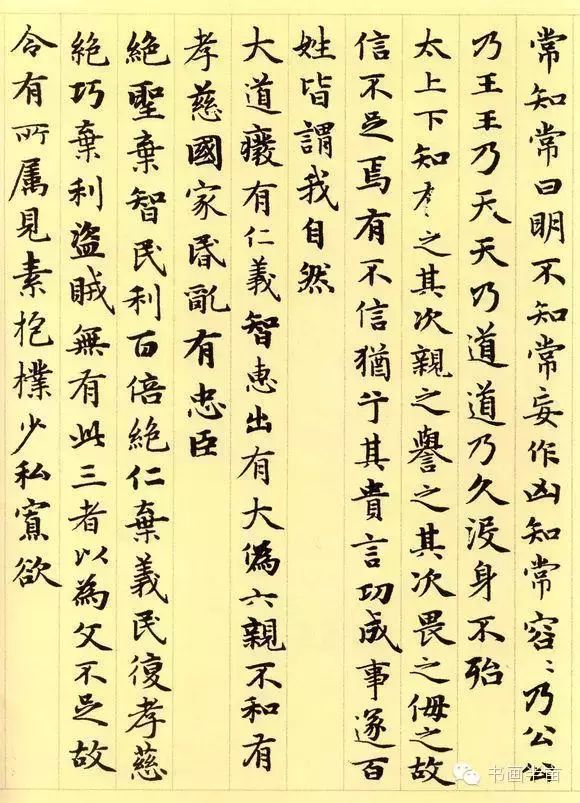 常知常曰明不知常妄作凶知常容〻乃公公
乃王王乃天天乃道道乃久没身不殆
太上下知有之其次親之譽之其次畏之侮之故
信不足焉有不信猶兮其貴言功成事遂百
姓皆謂我自然
大道癈有仁義智惠出有大偽六親不和有
孝慈國家昏亂有忠臣
絕聖棄智民利百倍絕仁棄義民復孝慈
絕巧棄利盜賊無有此三者以為文不足故
令有所属見素抱樸少私寡欲
书画半亩